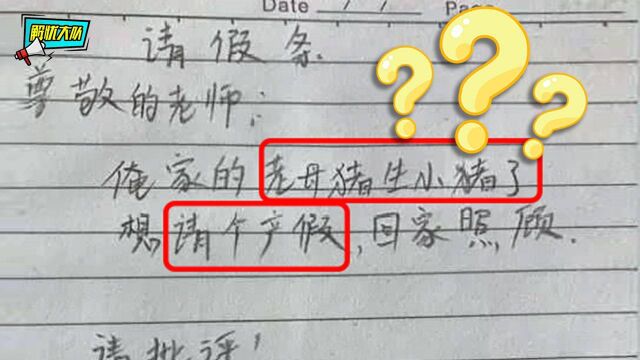 解忧大队
Date / / Page
请假条
尊敬的老师:
俺家的老母猪生小猪了
想请个产假,回家照顾.
请批评!